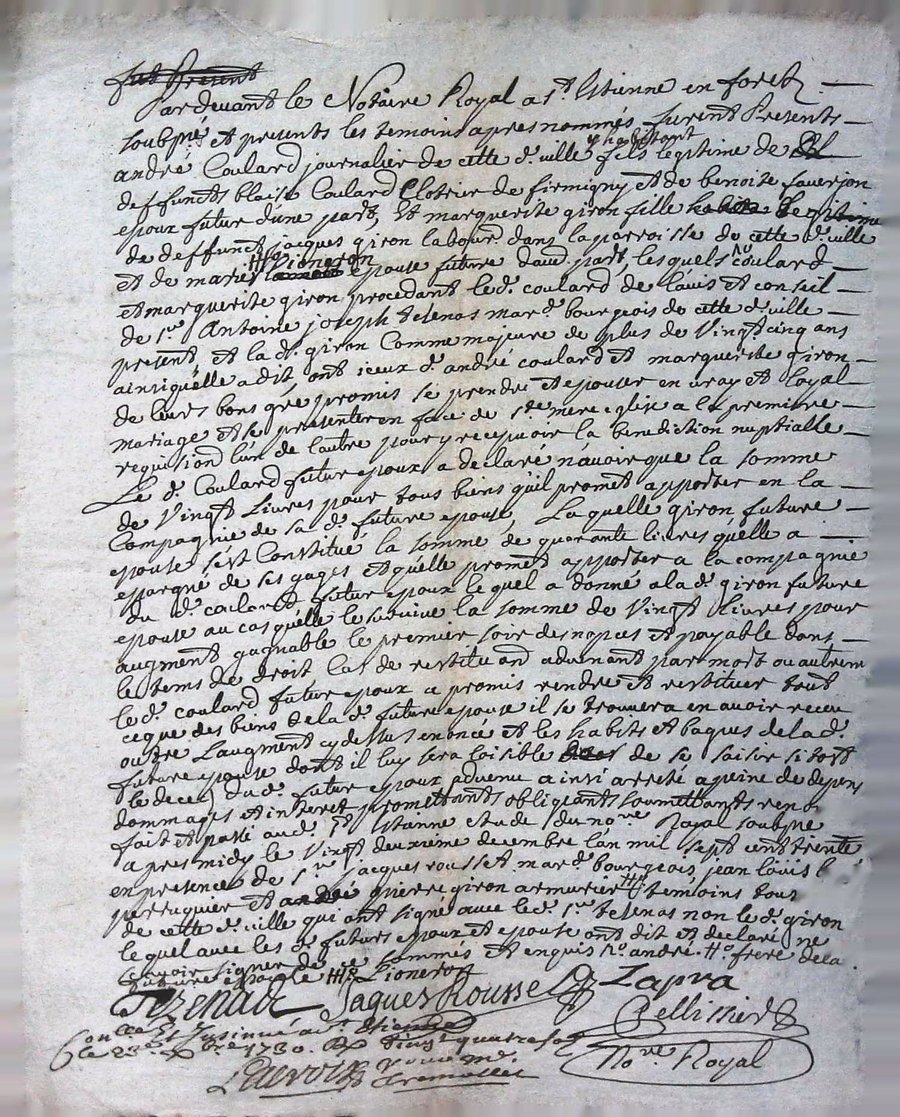 fut Present
Pardevant le Notaire Royal a St. Etienne en forest
soubnē et presents les temoins apres nommés furent Presents
y habitant
andré Coulard journalier de cette d. ville fils legitime de
deffunts blaise Coulard Clotrier de firmigny et de benoite faverjon
epoux futur dune part, Et marguerite giron fille legitime
de deffunt jacques giron labour. dans la parroisse de cette d. ville
et de marie Lioneron epouse future dau. part, lesquels coulard
et marguerite giron procedant le d. coulard de l'avis et conseil
de Sr. Antoine joseph tezenas mar. bourgeois de cette d. ville
present et la d. giron Comme majeure de plus de Vingt cinq ans
ainsi quelle a dit ont iceux d. andré coulard et marguerite giron
de leurs bons gré promis se prendre et epouser en vray et loyal
mariage et se presenter en face de Ste. mere eglise a la premiere
requision lun de lautre pour y recepvoir la benediction nuptialle
Le d. Coulard futur epoux a declaré n'avoir que la somme
de Vingt Livres pour tous biens qu'il promet apporter en la
Compagnie de sa d. future epouse, Laquelle giron future
epouse s'est Constitué la somme de quarante livres quelle a
epargné de ses gages et quelle promet apporter a la compagnie
du d. coulard futur epoux lequel a donné a la d. giron future
epouse au cas quelle le survive la somme de Vingt livres pour
augment gagnable le premier soir des nopces et payable dans
le tems de droit Cas de restituon advenant par mort ou autrem
le d. coulard futur epoux a promis rendre et restituer tout
ce que des biens de la d. future epouse il se trouvera en avoir receu
outre Laugment cy dessus enoncé et les habits et bagues de la d.
future epouse dont il luy sera loisible de se saisir sitost
le deces du d. futur epoux advenu ainsi arresté a peine de depens
dommages et interet promettants obligeants soumettants renō
fait et passé aud. St. Etienne etude du nore. Royal soubnē
apres midy le Vingt deuxieme decembre l'an mil sept cent trente
en presence de Sr. jacques rousset mar. bourgeois, jean louis
perruquier et pierre giron armurier temoins tous
de cette d. ville qui ont signé avec le d. Sr. tezenas non le d. giron
lequel avec les d. futurs epoux et epouse ont dit et declaré ne
scavoir signer de ce sommés et enquis andré frere de la
future epouse Lioneron
Tezenas Jaques Rousset Lapra
Pellissier
Con.lé et Insinué a St. Etienne
le 23e. Xbre 1730. Rx
Nore. Royal